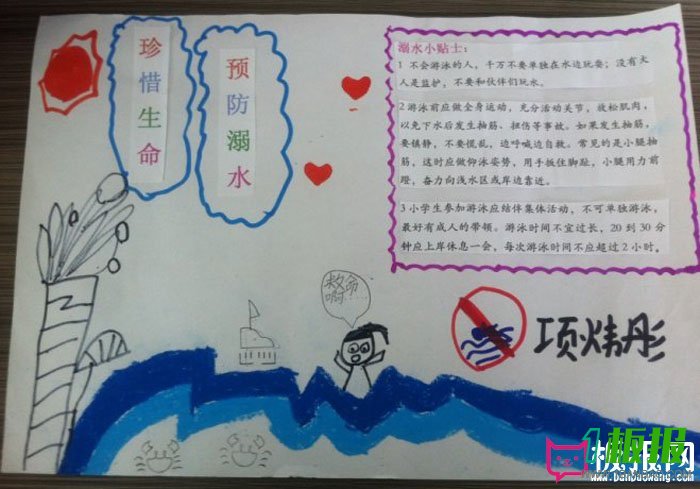 珍惜生命
预防溺水
溺水小贴士:
1 不会游泳的人，千万不要单独在水边玩耍；没有大
人是监护，不要和伙伴们玩水。
2 游泳前应做全身运动，充分活动关节，放松肌肉，
以免下水后发生抽筋、扭伤等事故。如果发生抽筋，
要镇静，不要慌乱，边呼喊边自救。常见的是小腿抽
筋，这时应做仰泳姿势，用手扳住脚趾，小腿用力前
蹬，奋力向浅水区或岸边靠近。
3 小学生参加游泳应结伴集体活动，不可单独游泳。
最好有成人的带领。游泳时间不宜过长，20 到 30 分
钟应上岸休息一会，每次游泳时间不应超过 2 小时。
救命
啊
项炜彤
板报网
www.banbaowang.com